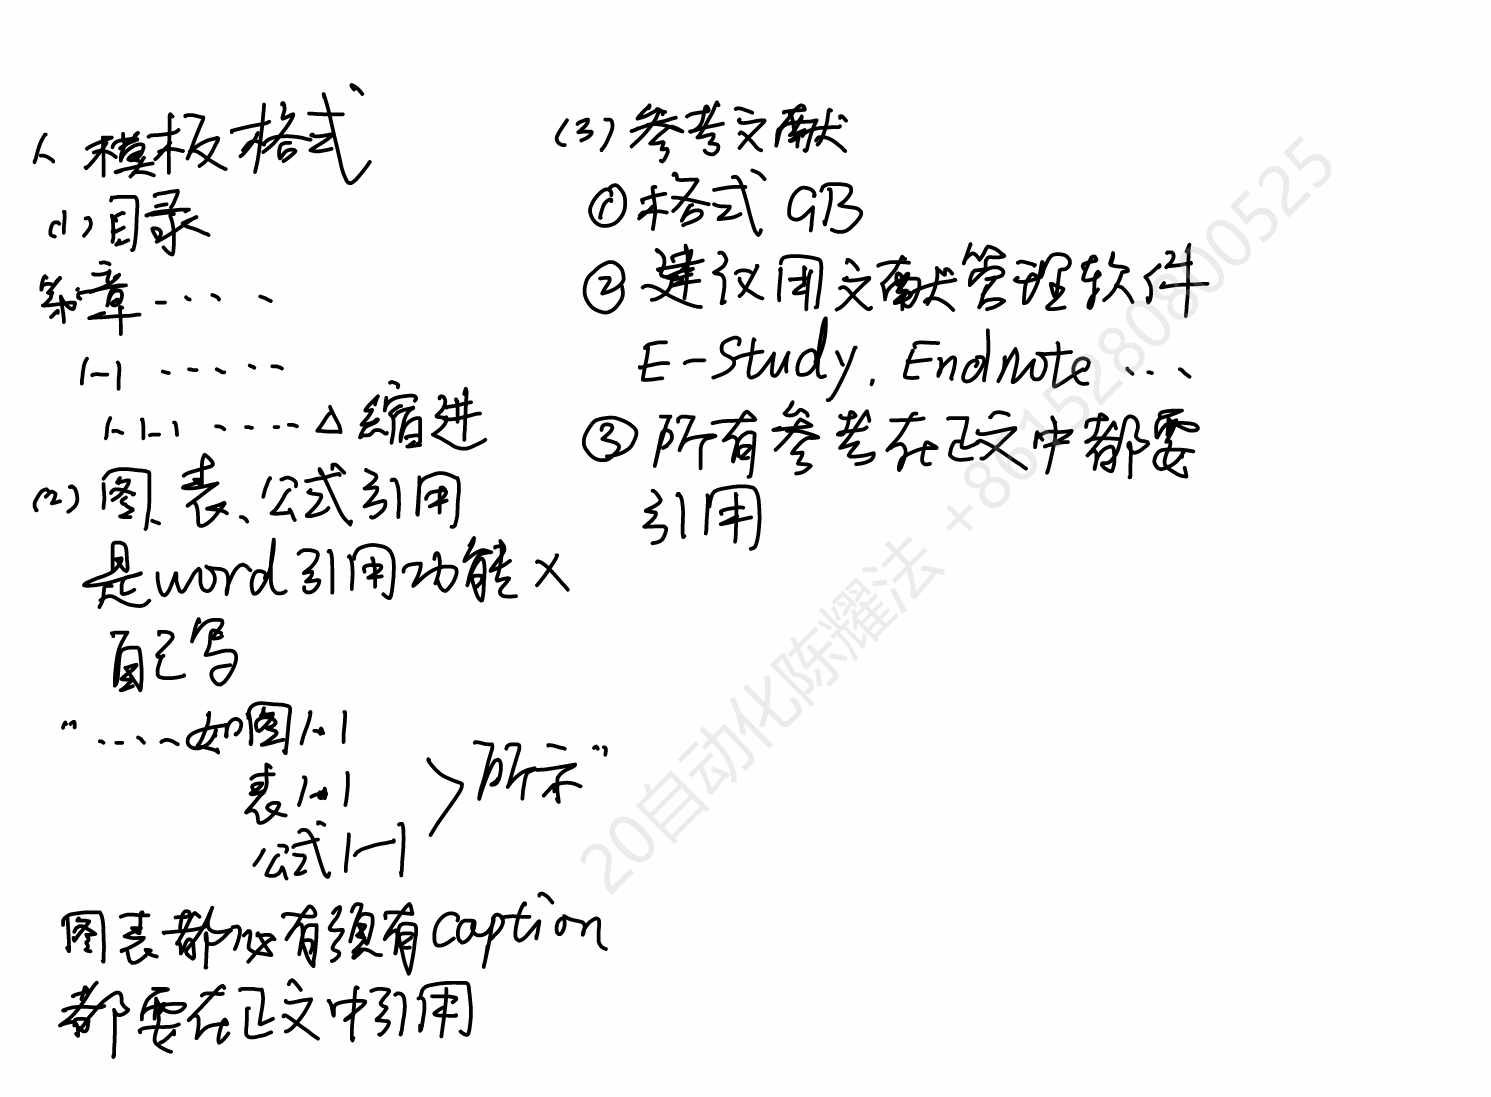 1、模板格式
(1)目录
第一章 ....
1-1 ......
1-1-1 .....△缩进
(2)图、表、公式引用
是word引用功能×
自己写
"....如图1-1
表1-1
公式1-1
所示"
图表都必有须有caption
都要在正文中引用
(3)参考文献
①格式 GB
②建议用文献管理软件
E-Study, Endnote ...
③所有参考在正文中都要
引用
20自动化陈耀法 +8615280800525